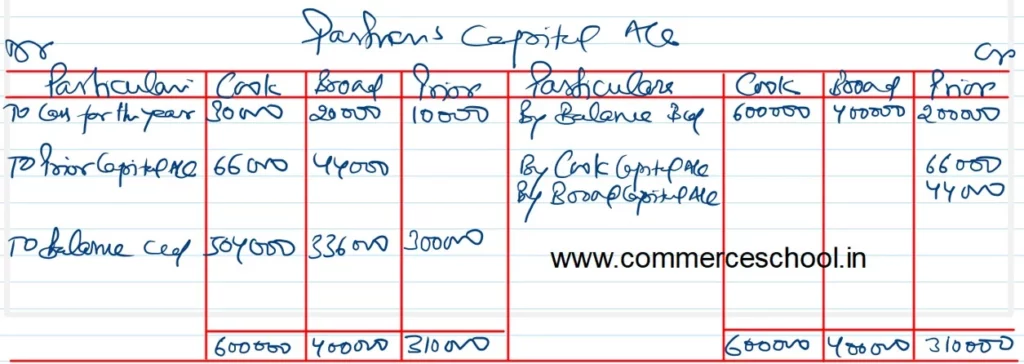 Partners Capital A/c
Dr Cr
Particulars Cook Broad Prior Particulars Cook Broad Prior
To Loss for the year 30000 20000 10000 By Balance B/d 600000 400000 200000
To Prior Capital A/c 66000 44000 By Cook Capital A/c 66000
By Broad Capital A/c 44000
To Balance C/d 504000 336000 300000
www.commerceschool.in
600000 400000 310000 600000 400000 310000